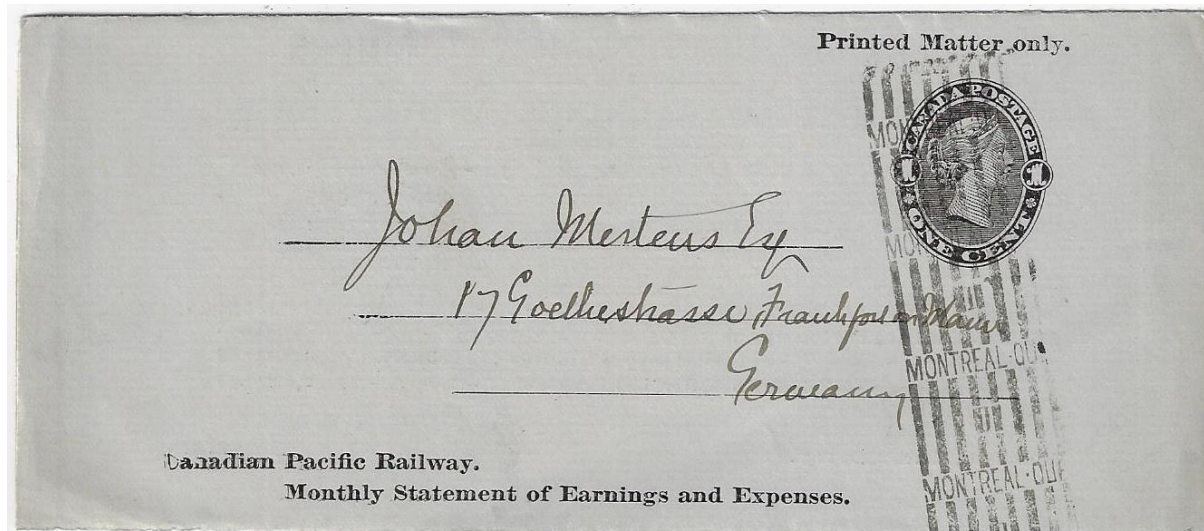 Printed Matter only.
CANADA POSTAGE
1 1
ONE CENT
MON
MON
Johan Mertens Esq
17 Goethestrasse, Frankfort on Main
Germany
MONTREAL·QUE
MONTREAL·QUE
Canadian Pacific Railway.
Monthly Statement of Earnings and Expenses.